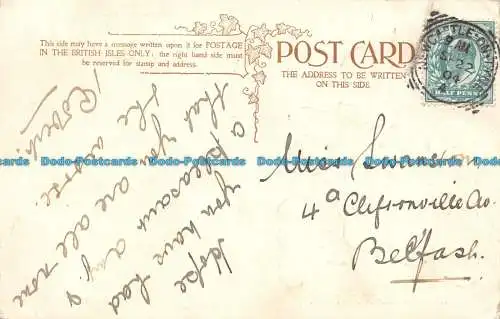 This side may have a message written upon it for POSTAGE
IN THE BRITISH ISLES ONLY: the right hand side must
be reserved for stamp and address.
POST CARD
THE ADDRESS TO BE WRITTEN
ON THIS SIDE.
HALFPENNY
22
04
Hope you have had
a pleasant day &
that you are all none
the worse.
Robert.
Miss
4a Cliftonville Av.
Belfast.
Dodo-Postcards Dodo-Postcards Dodo-Postcards Dodo-Postcards Dodo-Postcards
Dodo-Postcards Dodo-Postcards Dodo-Postcards Dodo-Postcards Dodo-Postcards